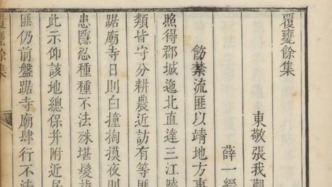 覆甕餘集
東敬張我觀
薛一經
飭禁流匪以靖地方事
照得郡城迤北直達三江
類皆守分耕農近訪有等匪
踞廟寺日則白撞掏摸夜則
患隱忍種種不法殊堪髮指
此示仰該地總保并附近居
匪仍前盤踞寺廟肆行不法
覆甕餘集